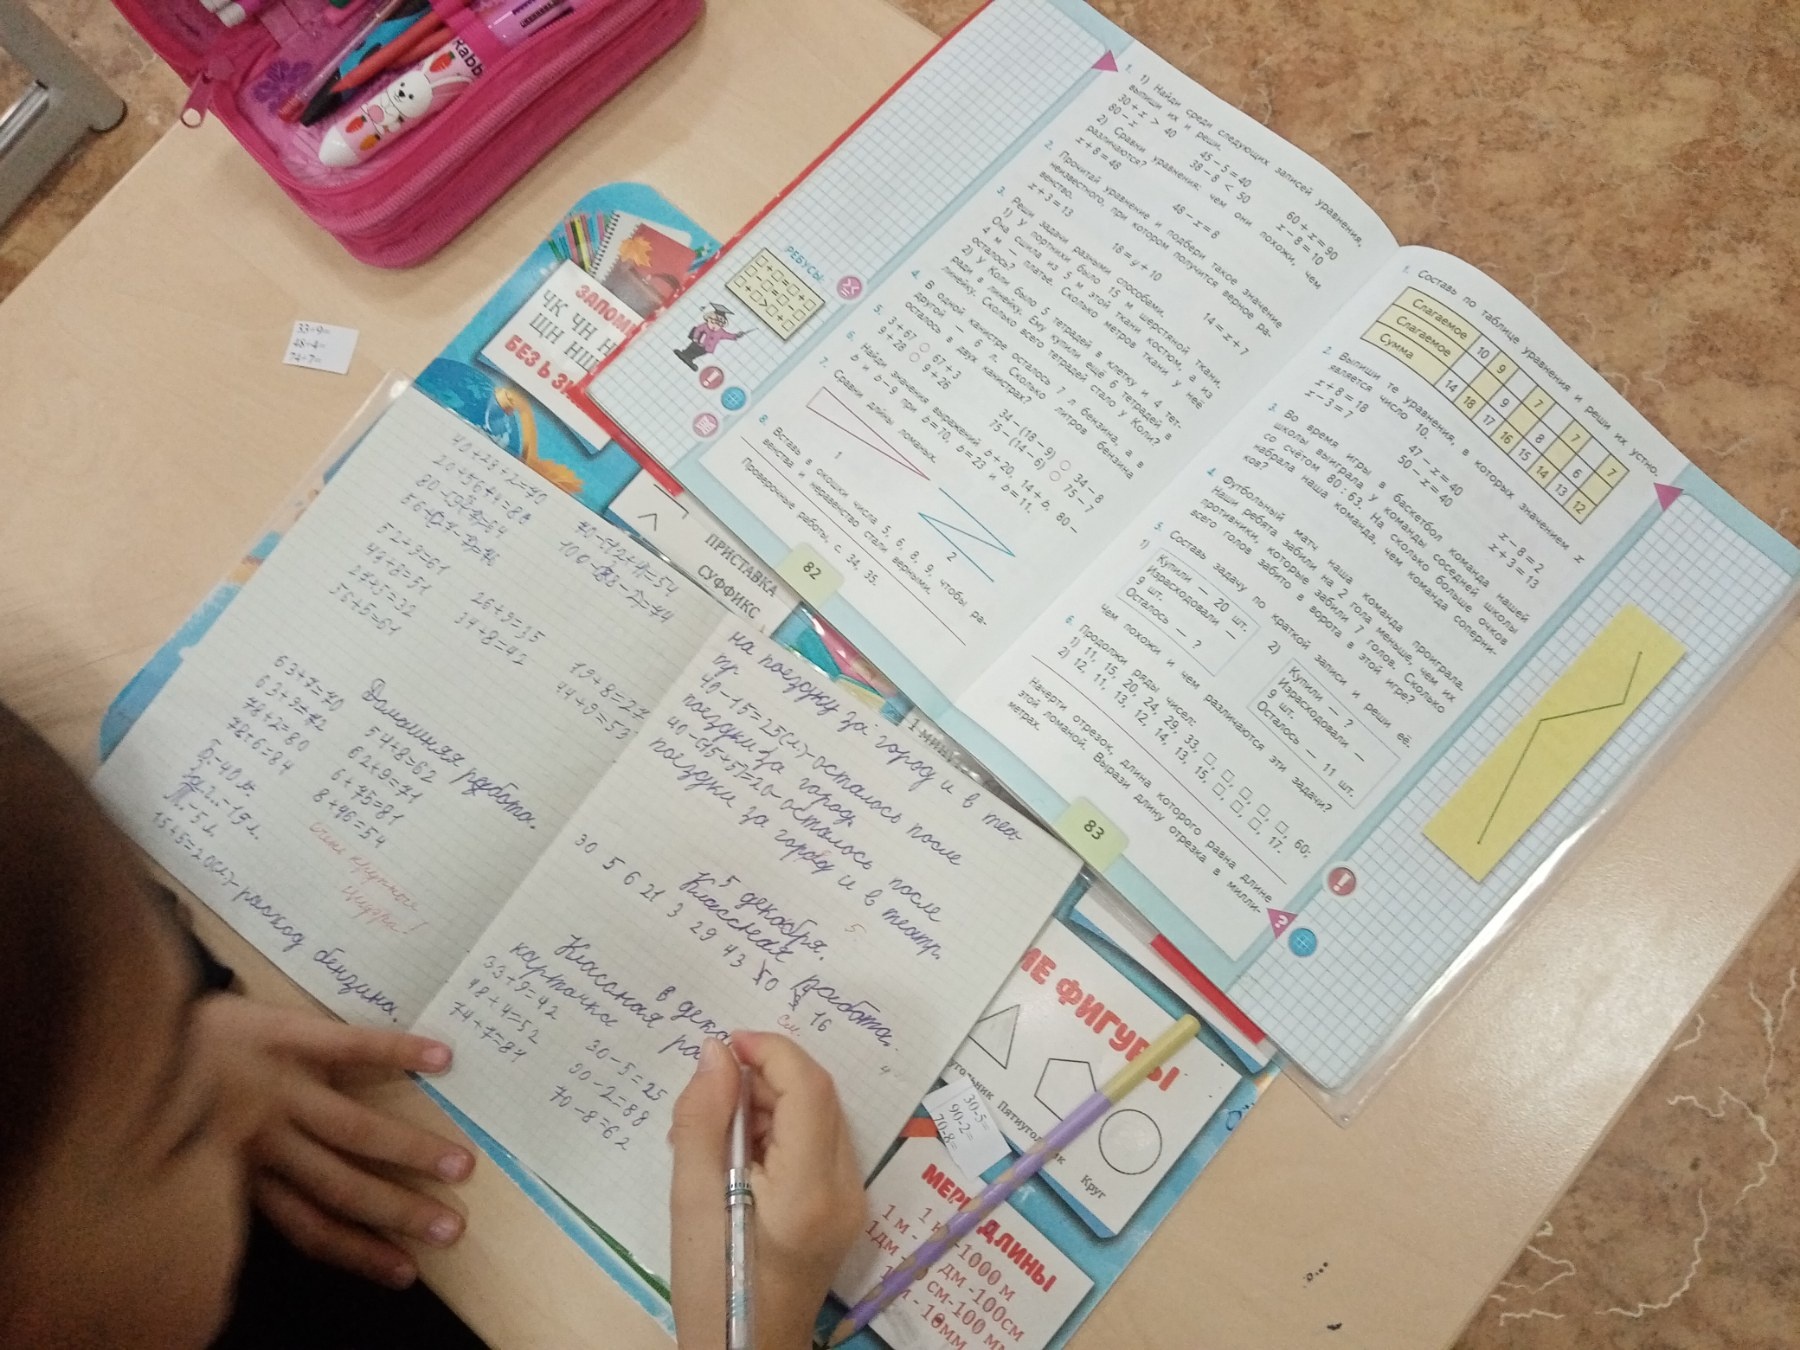 Rabb
33+9=
48+4=
74+7=
ЗАПОМН
ЧК ЧН Н
ЩН НЩ
БЕЗ Ь ЗН
ПРИСТАВКА
СУФФИКС
40+28+2=70
52+9=61
43+8=51
27+5=32
56+5=61
26+9=35
34+8=42
19+8=27
44+9=53
Домашняя работа.
63+7=70
63+9=72
78+2=80
78+6=84
54+8=62
62+9=71
6+75=81
8+46=54
Б.-40л.
Т.-5л.
15+5=20(л)-расход бензина.
на поездку за город и в теа-
тр.
40-15=25(л)-осталось после
поездки за город.
40-(15+5)=20-осталось после
поездки за город и в театр.
5 декабря.
Классная работа.
30 5 6 21 3 29 43 50 8 16
см.
в дека
Классная ра
карточка
33+9=42
48+4=52
74+7=81
30-5=25
90-2=88
70-8=62
РЕБУСЫ
1. 1) Найди среди следующих записей уравнения,
выпиши их и реши.
30 + x > 40 45 – 5 = 40 60 + x = 90
80 – x 38 – 8 < 50 x – 8 = 10
2) Сравни уравнения: чем они похожи, чем
различаются?
x + 8 = 48 48 – x = 8
2. Прочитай уравнение и подбери такое значение
неизвестного, при котором получится верное ра-
венство.
x + 3 = 13 18 = y + 10 14 = x + 7
3. Реши задачи разными способами.
1) У портнихи было 15 м шерстяной ткани.
Она сшила из 5 м этой ткани костюм, а из
4 м — платье. Сколько метров ткани у неё
осталось?
2) У Коли было 5 тетрадей в клетку и 4 тет-
ради в линейку. Ему купили ещё 6 тетрадей в
линейку. Сколько всего тетрадей стало у Коли?
4. В одной канистре осталось 7 л бензина, а в
другой — 6 л. Сколько литров бензина
осталось в двух канистрах?
5. 3 + 67 ○ 67 + 3 34 – (18 – 9) ○ 34 – 8
9 + 28 ○ 9 + 26 75 – (14 – 6) ○ 75 – 7
6. Найди значения выражений b + 20, 14 + b, 80 –
b и b – 9 при b = 70, b = 23 и b = 11.
7. Сравни длины ломаных.
1
2
8. Вставь в окошки числа 5, 6, 8, 9, чтобы ра-
венства и неравенство стали верными.
Проверочные работы, с. 34, 35.
82
1. Составь по таблице уравнения и реши их устно.
Слагаемое 10 9 7 7 7
Слагаемое 9 8 6
Сумма 14 18 17 16 15 14 13 12
2. Выпиши те уравнения, в которых значением x
является число 10.
x + 8 = 18 47 – x = 40 x – 8 = 2
x – 3 = 7 50 – x = 40 x + 3 = 13
3. Во время игры в баскетбол команда нашей
школы выиграла у команды соседней школы
со счётом 80 : 63. На сколько больше очков
набрала наша команда, чем команда соперни-
ков?
4. Футбольный матч наша команда проиграла.
Наши ребята забили на 2 гола меньше, чем их
противники, которые забили 7 голов. Сколько
всего голов забито в ворота в этой игре?
5. Составь задачу по краткой записи и реши её.
1) Купили — 20 шт.
Израсходовали —
9 шт.
Осталось — ?
2) Купили — ?
Израсходовали —
9 шт.
Осталось — 11 шт.
Чем похожи и чем различаются эти задачи?
6. Продолжи ряды чисел:
1) 11, 15, 20, 24, 29, 33, □, □, □, □, □, 60;
2) 12, 11, 13, 12, 14, 13, 15, □, □, □, □, 17.
Начерти отрезок, длина которого равна длине
этой ломаной. Вырази длину отрезка в милли-
метрах.
83
ИЕ ФИГУРЫ
Пятиугол
Круг
30-5=
90-2=
70-8=
МЕРЫ ДЛИНЫ
-1000 м
-100см
см-100 мм